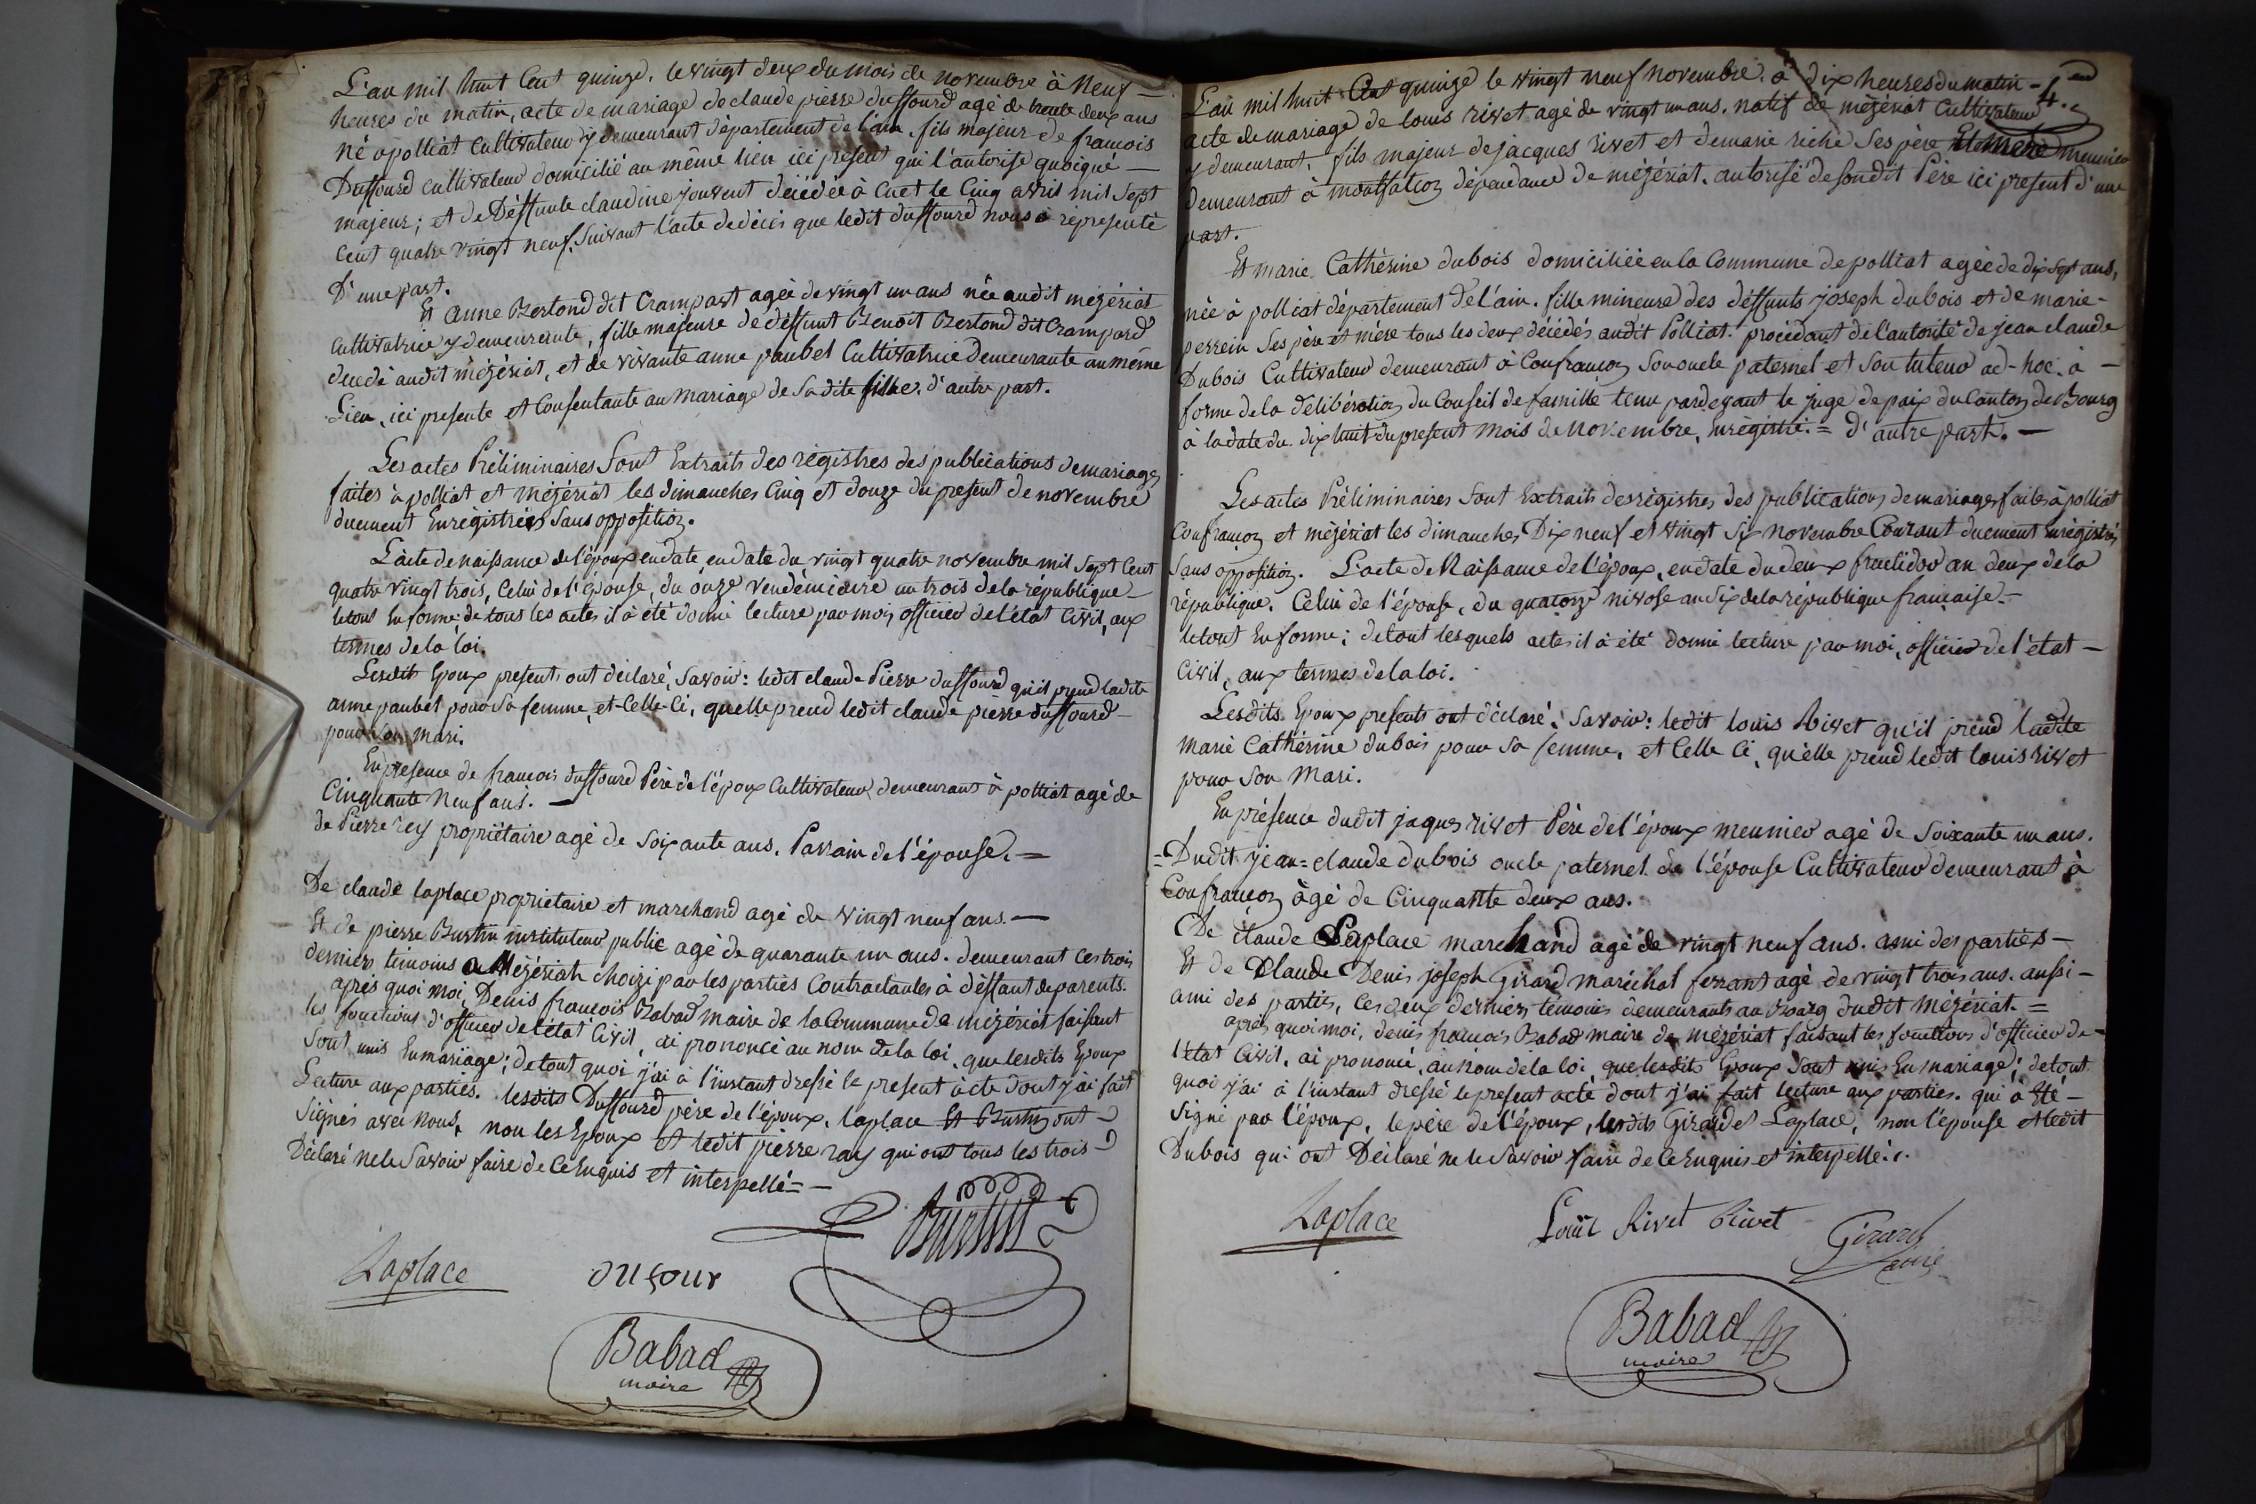 L'an mil huit Cent quinze, le vingt deux du mois de novembre à Neuf —
heures du matin, acte de mariage de claude pierre duffourd agé de trente deux ans
né a polliat Cultivateur y demeurant département de l'ain, fils majeur de francois
Duffourd cultivateur domicilié au même lieu ici present qui l'autorise quoique —
majeur; et de Déffunte claudine jouvent décédée à Cuet le Cinq avril mil sept
Cent quatre vingt neuf, suivant l'acte de décès que ledit duffourd nous a representé
D'une part.
Et anne Bertond dit Crampart agée de vingt un ans née audit mézériat
Cultivatrice y demeurante, fille majeure de déffunt Benoit Bertond dit Crampard
decedé audit mézériat, et de vivante anne paubel Cultivatrice demeurante au même
Lieu, ici presente et Consentante au mariage de sadite fille. d'autre part.
Les actes Préliminaires sont Extraits des régistres des publications de mariages
faites à polliat et mézériat les dimanches Cinq et douze du present de novembre
duement Enrégistrés sans opposition.
L'acte de naissance de l'époux en date, en date du vingt quatre novembre mil sept Cent
quatre vingt trois, Celui de l'épouse, du onze vendémiaire an trois de la république —
le tout En forme: de tous les actes il à été donné lecture par moi officier de l'état Civil, aux
termes de la loi.
Lesdits Epoux presents ont déclaré, savoir: ledit claude Pierre duffourd qu'il prend ladite
anne paubel pour sa femme, et Celle Ci, quelle prend ledit claude pierre duffourd —
pour son mari.
En presence de francois duffourd Père de l'époux Cultivateur demeurant à polliat agé de
Cinquante Neuf ans. —
de Pierre rey propriétaire agé de soixante ans. Parrain de l'épouse. =
De claude laplace propriétaire et marchand agé de vingt neuf ans. —
Et de pierre Burtin instituteur public agé de quarante un ans. demeurant ces trois
derniers temoins a Mézériat choizi par les parties Contractantes à déffaut de parents.
après quoi moi, Denis francois Babad maire de la Commune de mézériat faisant
les fonctions d'officier de l'état Civil, ai prononcé au nom de la loi, que lesdits Epoux
sont unis En mariage; de tout quoi j'ai à l'instant dressé le present acte dont j'ai fait
Lecture aux parties. lesdits Duffourd père de l'époux, laplace Et Burtin ont
signés avec nous, non les Epoux et ledit pierre ray qui ont tous les trois
Déclaré ne le savoir faire de Ce Enquis et interpellé = —
Burtin
Laplace dufour
Babad
maire
4.
L'an mil huit Cent quinze le vingt neuf novembre. à dix heures du matin —
acte de mariage de louis rivet agé de vingt un ans. natif de mézériat Cultivateur
y demeurant, fils majeur de jacques rivet et de marie riche ses père Et mère meunier
demeurant à montfalcon dépendance de mézériat. autorisé de sondit Père ici present d'une
part.
Et marie Cathérine dubois domiciliée en la Commune de polliat agée de dix sept ans,
née à polliat département de l'ain. fille mineure des déffunts joseph dubois et de marie —
perrein ses père et mère tous les deux décédés audit Polliat. procédant de l'autorité de jean claude
Dubois Cultivateur demeurant à Confrançon son oncle paternel et son tuteur ad-hoc. à —
forme de la délibération du Conseil de famille tenu pardevant le juge de paix du Canton de Bourg
à la date du dix huit du present mois de Novembre, Enrégistré. = d'autre part. —
Les actes Préliminaires sont Extraits des régistres des publications de mariages faites à polliat
Confrançon et mézériat les dimanches Dix neuf et vingt six novembre Courant duement Enrégistrés
sans opposition. L'acte de Naissance de l'époux, en date du deux fructidor an deux de la
république. Celui de l'épouse, du quatorze nivose an six de la république française. —
le tout En forme; de tout lesquels actes il à été donné lecture par moi, officier de l'état —
Civil, aux termes de la loi.
Lesdits Epoux presents ont déclaré, savoir: ledit louis Rivet qu'il prend ladite
marie Cathérine dubois pour sa femme, et Celle Ci, qu'elle prend ledit louis rivet
pour son Mari.
En présence dudit jaques rivet Père de l'époux meunier agé de soixante un ans.
= Dudit jean = claude dubois oncle paternel de l'épouse Cultivateur demeurant à
Confrançon âgé de Cinquante deux ans.
De claude Laplace marchand agé de vingt neuf ans. ami des parties —
Et de Claude Denis joseph Girard maréchal ferrant agé de vingt trois ans. aussi —
ami des parties, ces deux derniers témoins demeurants au Bourg dudit mézériat. =
après quoi moi, denis francois Babad maire de mézériat faisant les fonctions d'officier de —
l'état Civil, ai prononcé, au nom de la loi que lesdits Epoux sont unis En mariage; de tout
quoi j'ai à l'instant dressé le present acte dont j'ai fait lecture aux parties. qui à été —
signé par l'époux, le père de l'époux, lesdits Girard et Laplace, non l'épouse et ledit
Dubois qui ont Déclaré ne le savoir faire de Ce Enquis et interpellé.
Laplace Louit Rivet Rivet Girard
Babad
maire